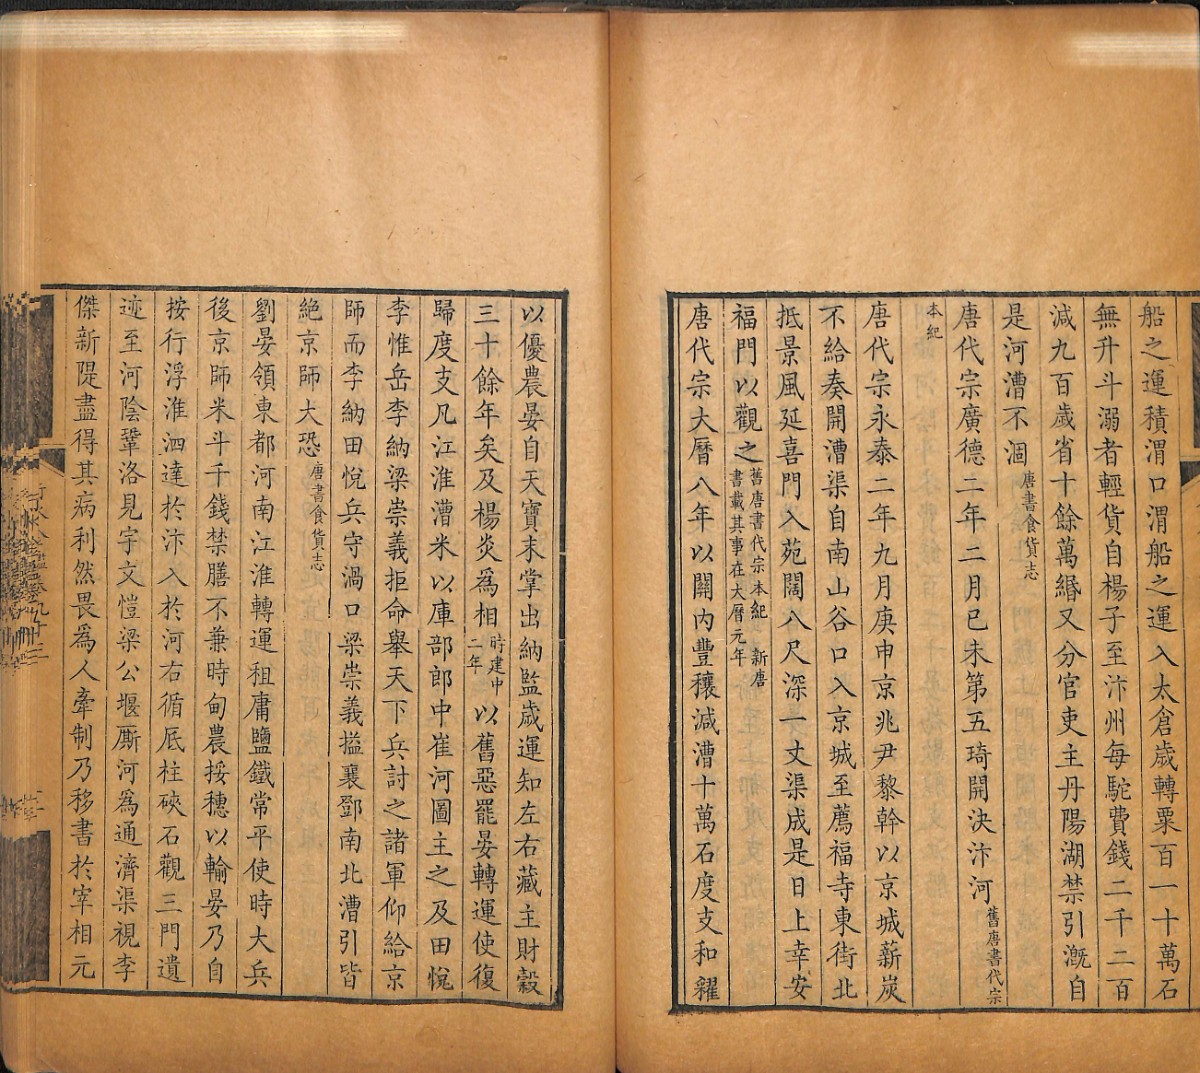 船之運積渭口渭船之運入太倉歲轉粟百一十萬石
無升斗溺者輕貨自楊子至汴州每駝費錢二千二百
減九百歲省十餘萬緡又分官吏主丹陽湖禁引漑自
是河漕不涸唐書食貨志
唐代宗廣德二年二月己未第五琦開決汴河舊唐書代宗
本紀
唐代宗永泰二年九月庚申京兆尹黎幹以京城薪炭
不給奏開漕渠自南山谷口入京城至薦福寺東街北
抵景風延喜門入苑闊八尺深一丈渠成是日上幸安
福門以觀之舊唐書代宗本紀 新唐書載其事在大曆元年
唐代宗大曆八年以關內豐穰減漕十萬石度支和糴
以優農晏自天寶末掌出納監歲運知左右藏主財穀
三十餘年矣及楊炎爲相時建中二年以舊惡罷晏轉運使復
歸度支凡江淮漕米以庫部郎中崔河圖主之及田悅
李惟岳李納梁崇義拒命舉天下兵討之諸軍仰給京
師而李納田悅兵守渦口梁崇義搤襄鄧南北漕引皆
絶京師大恐唐書食貨志
劉晏領東都河南江淮轉運租庸鹽鐵常平使時大兵
後京師米斗千錢禁膳不兼時甸農挼穗以輸晏乃自
按行浮淮泗達於汴入於河右循厎柱硤石觀三門遺
迹至河陰鞏洛見宇文愷梁公堰厮河爲通濟渠視李
傑新隄盡得其病利然畏爲人牽制乃移書於宰相元